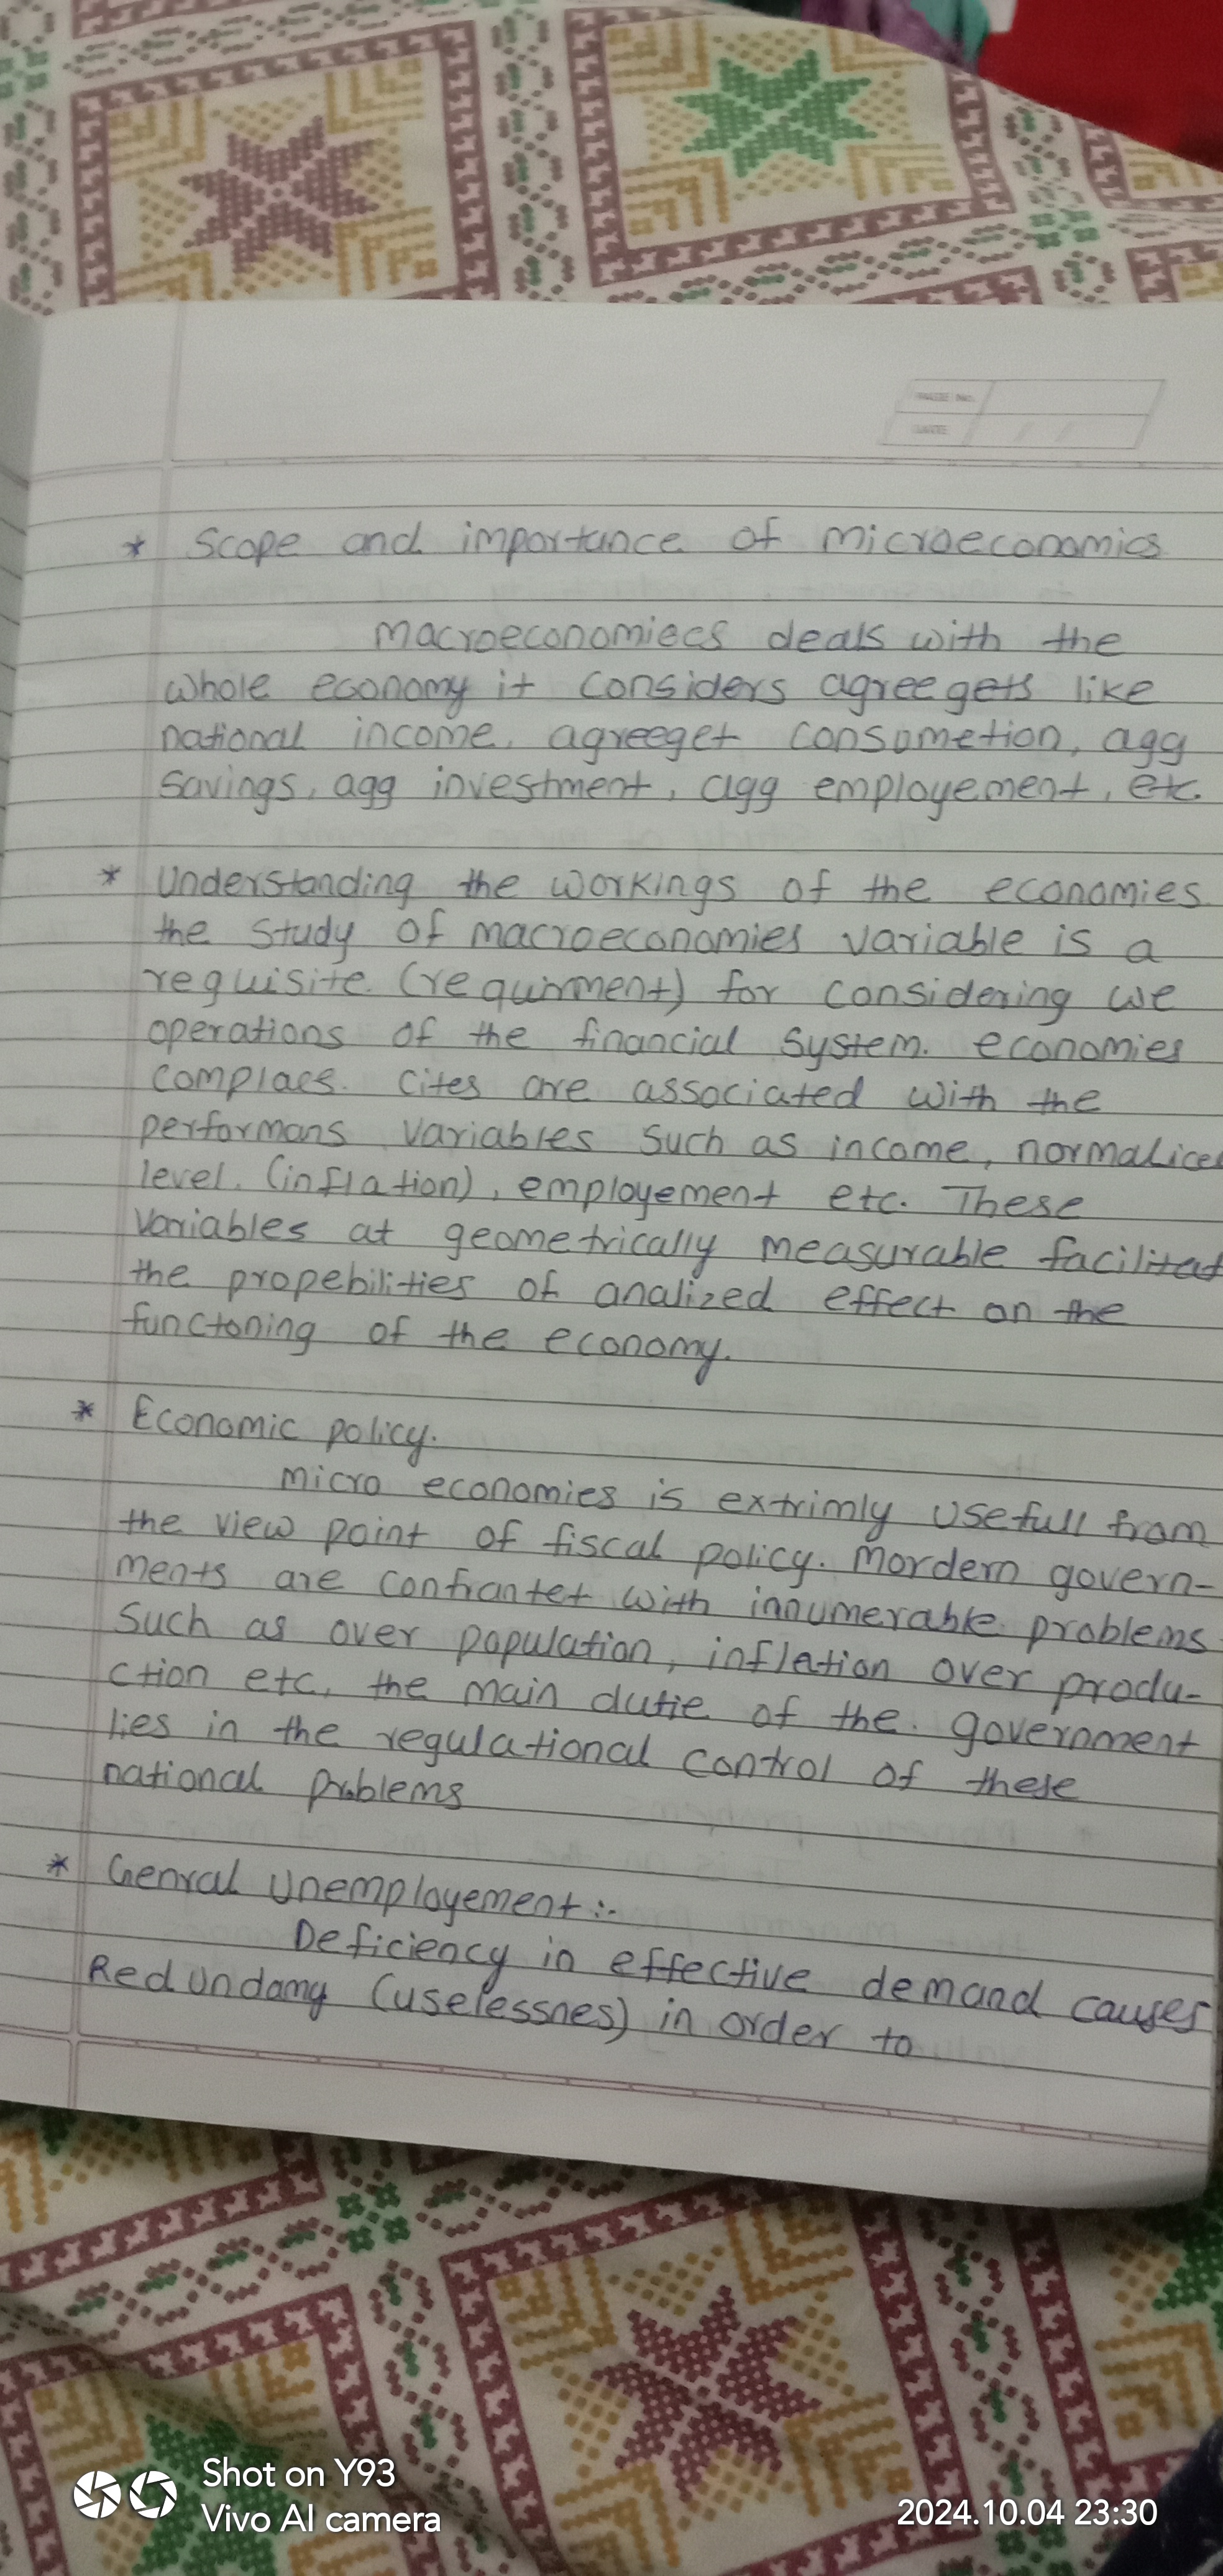 PAGE No.
DATE
* Scope and importance of microeconomics
macroeconomiecs deals with the
whole economy it considers agreegets like
national income, agreeget consometion, agg
savings, agg investment, agg employement, etc.
* Understanding the workings of the economies
the study of macroeconomies variable is a
requisite (requirment) for considering we
operations of the financial system. economies
complaes. cites are associated with the
performans variables such as income, normalice
level. (inflation), employement etc. These
variables at geometrically measurable facilitat
the propebilities of analized effect on the
functoning of the economy.
* Economic policy.
micro economies is extrimly usefull from
the view point of fiscal policy. Mordern govern-
ments are confrantet with innumerable problems
such as over population, inflation over produ-
ction etc, the main dutie of the government
lies in the regulational control of these
national problems
* Genral Unemployement :-
Deficiency in effective demand causes
Redundamy (uselessnes) in order to
Shot on Y93
Vivo AI camera
2024.10.04 23:30